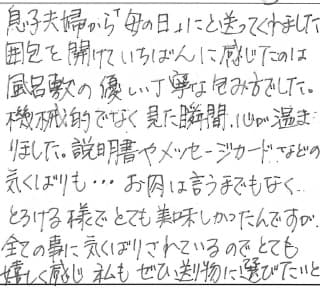 息子夫婦から「母の日」にと送ってくれました
囲包を開けていちばんに感じたのは
風呂敷の優しい丁寧な包み方でした。
機械的でなく見た瞬間、心が温ま
りました。説明書やメッセージカードなどの
気くばりも… お肉は言うまでもなく
とろける様でとても美味しかったんですが、
全ての事に気くばりされているのでとても
嬉しく感じ 私も ぜひ送り物に選びたいと